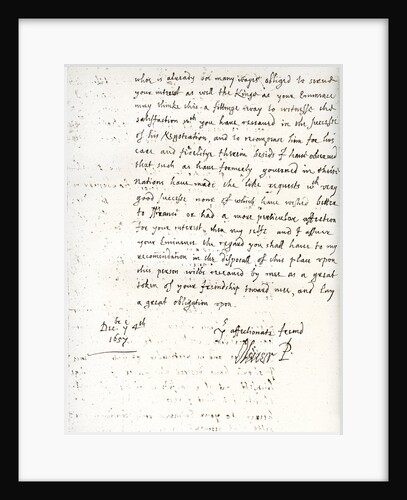 who is already soe many wayes obliged to serve
your interest as well the Kings as your Eminence
may thinke this a fittinge way to witnesse the
satisfaction wch you have received in the successe
of his Negotiation, and to recompense him for his
care and fidelitye therein besids I have observed
that such as have formerly governed in theise
nations have made the like requests wth very
good successe none of which have wished better
to France or had a more perticular affection
for your interest, then my selfe and I assure
your Eminence the regard you shall have to my
recomendation in the disposall of this place upon
this person wilbe received by mee as a great
token of your friendship toward mee, and lay
a great obligation upon
Decbr ye 4th
1657
Yr affectionate freind
Oliver P.